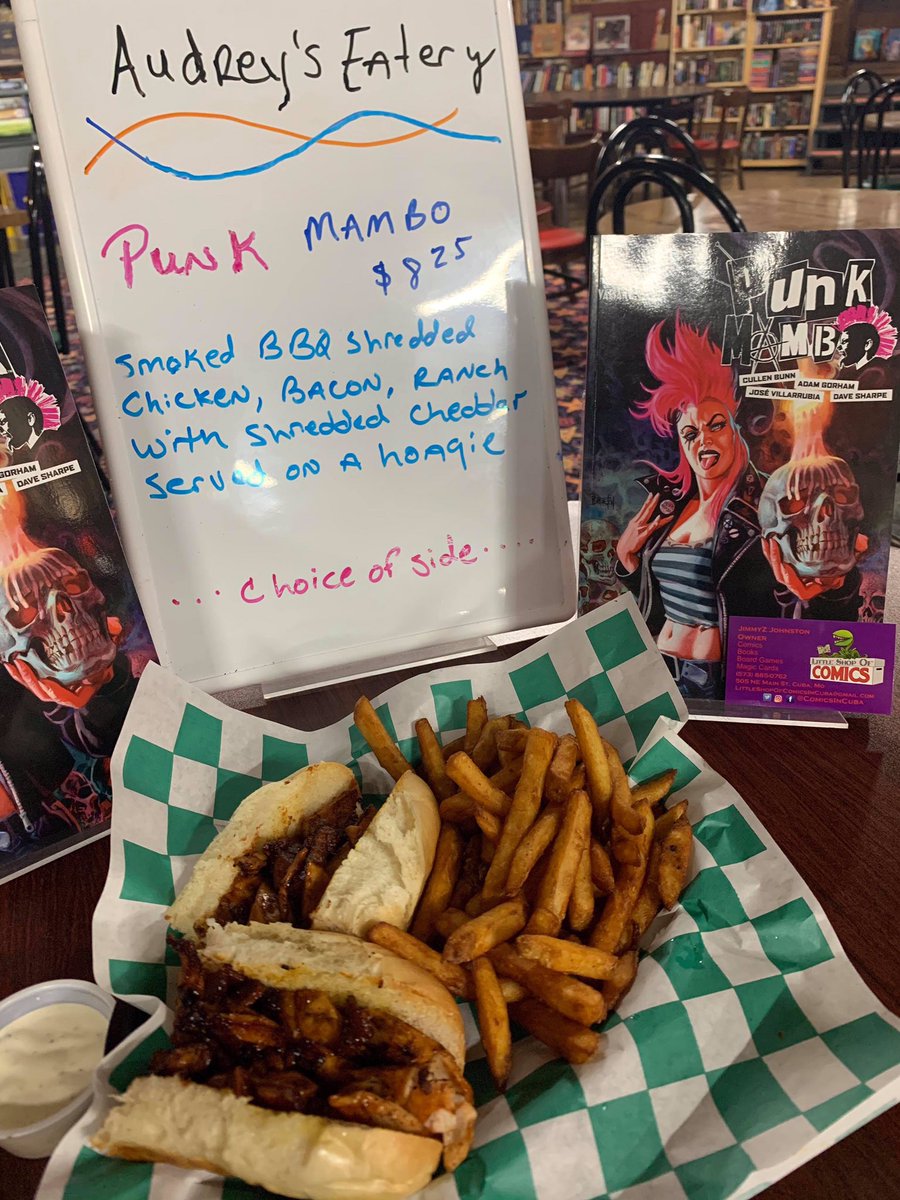 Audrey's Eatery
Punk MAMBO
$8.25
Smoked BBQ Shredded
Chicken, BACON, RANCH
with shredded cheddar
served on A hoagie
...choice of side....
Punk
MAMBO
CULLEN BUNN ADAM GORHAM
JOSÉ VILLARRUBIA DAVE SHARPE
JimmyZ Johnston
Owner
Comics
Books
Board Games
Magic Cards
505 NE Main St. Cuba, Mo
LittleshopOfComicsInCuba@gmail.com
@ComicsInCuba
Little Shop Of
COMICS
GORHAM
DAVE SHARPE